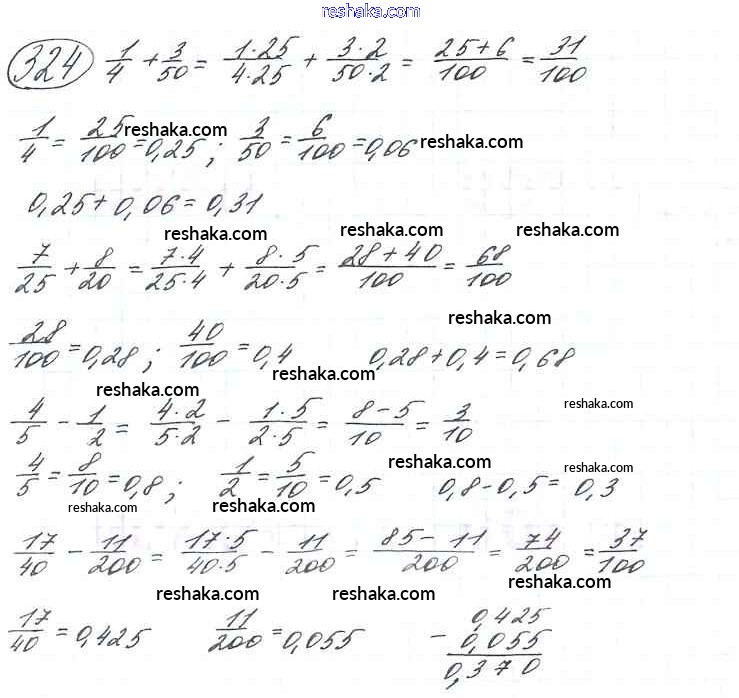 reshaka.com
324 1/4 + 3/50 = 1·25/4·25 + 3·2/50·2 = 25+6/100 = 31/100
1/4 = 25/100 = 0,25 ; 3/50 = 6/100 = 0,06
reshaka.com reshaka.com
0,25 + 0,06 = 0,31
reshaka.com reshaka.com reshaka.com
7/25 + 8/20 = 7·4/25·4 + 8·5/20·5 = 28+40/100 = 68/100
reshaka.com
28/100 = 0,28 ; 40/100 = 0,4 0,28 + 0,4 = 0,68
reshaka.com reshaka.com
4/5 - 1/2 = 4·2/5·2 - 1·5/2·5 = 8-5/10 = 3/10
reshaka.com
4/5 = 8/10 = 0,8 ; 1/2 = 5/10 = 0,5 0,8 - 0,5 = 0,3
reshaka.com reshaka.com
reshaka.com reshaka.com
17/40 - 11/200 = 17·5/40·5 - 11/200 = 85-11/200 = 74/200 = 37/100
reshaka.com reshaka.com reshaka.com
17/40 = 0,425 11/200 = 0,055 0,425
- 0,055
0,370